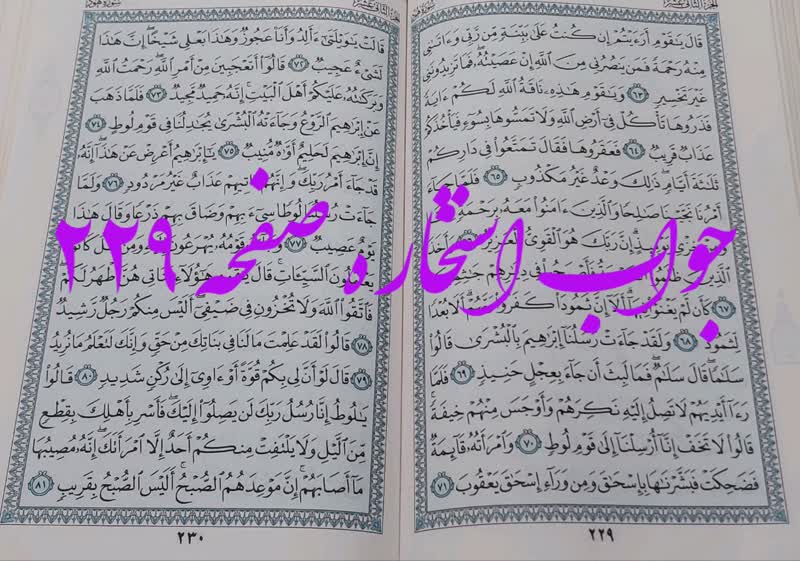 قَالَ يَٰقَوْمِ أَرَءَيْتُمْ إِن كُنتُ عَلَىٰ بَيِّنَةٍ مِّن رَّبِّى وَءَاتَىٰنِى
مِنْهُ رَحْمَةً فَمَن يَنصُرُنِى مِنَ ٱللَّهِ إِنْ عَصَيْتُهُۥ فَمَا تَزِيدُونَنِى
غَيْرَ تَخْسِيرٍ ٦٣ وَيَٰقَوْمِ هَٰذِهِۦ نَاقَةُ ٱللَّهِ لَكُمْ ءَايَةً
فَذَرُوهَا تَأْكُلْ فِىٓ أَرْضِ ٱللَّهِ وَلَا تَمَسُّوهَا بِسُوٓءٍ فَيَأْخُذَكُمْ
عَذَابٌ قَرِيبٌ ٦٤ فَعَقَرُوهَا فَقَالَ تَمَتَّعُوا۟ فِى دَارِكُمْ
ثَلَٰثَةَ أَيَّامٍ ذَٰلِكَ وَعْدٌ غَيْرُ مَكْذُوبٍ ٦٥ فَلَمَّا جَآءَ
أَمْرُنَا نَجَّيْنَا صَٰلِحًا وَٱلَّذِينَ ءَامَنُوا۟ مَعَهُۥ بِرَحْمَةٍ
خِزْىِ يَوْمِئِذٍ إِنَّ رَبَّكَ هُوَ ٱلْقَوِىُّ ٱلْعَزِيزُ وَأَخَذَ
ٱلَّذِينَ ظَلَمُوا۟ فَأَصْبَحُوا۟ فِى دِيَٰرِهِمْ جَٰثِمِينَ
٦٧ كَأَن لَّمْ يَغْنَوْا۟ فِيهَآ أَلَآ إِنَّ ثَمُودَا۟ كَفَرُوا۟ رَبَّهُمْ أَلَا بُعْدًا
لِّثَمُودَ ٦٨ وَلَقَدْ جَآءَتْ رُسُلُنَآ إِبْرَٰهِيمَ بِٱلْبُشْرَىٰ قَالُوا۟
سَلَٰمًا قَالَ سَلَٰمٌ فَمَا لَبِثَ أَن جَآءَ بِعِجْلٍ حَنِيذٍ ٦٩ فَلَمَّا
رَءَآ أَيْدِيَهُمْ لَا تَصِلُ إِلَيْهِ نَكِرَهُمْ وَأَوْجَسَ مِنْهُمْ خِيفَةً
قَالُوا۟ لَا تَخَفْ إِنَّآ أُرْسِلْنَآ إِلَىٰ قَوْمِ لُوطٍ ٧٠ وَٱمْرَأَتُهُۥ قَآئِمَةٌ
فَضَحِكَتْ فَبَشَّرْنَٰهَا بِإِسْحَٰقَ وَمِن وَرَآءِ إِسْحَٰقَ يَعْقُوبَ ٧١
٢٢٩
قَالَتْ يَٰوَيْلَتَىٰٓ ءَأَلِدُ وَأَنَا۠ عَجُوزٌ وَهَٰذَا بَعْلِى شَيْخًا إِنَّ هَٰذَا
لَشَىْءٌ عَجِيبٌ ٧٢ قَالُوٓا۟ أَتَعْجَبِينَ مِنْ أَمْرِ ٱللَّهِ رَحْمَتُ ٱللَّهِ
وَبَرَكَٰتُهُۥ عَلَيْكُمْ أَهْلَ ٱلْبَيْتِ إِنَّهُۥ حَمِيدٌ مَّجِيدٌ ٧٣ فَلَمَّا ذَهَبَ
عَنْ إِبْرَٰهِيمَ ٱلرَّوْعُ وَجَآءَتْهُ ٱلْبُشْرَىٰ يُجَٰدِلُنَا فِى قَوْمِ لُوطٍ ٧٤
إِنَّ إِبْرَٰهِيمَ لَحَلِيمٌ أَوَّٰهٌ مُّنِيبٌ ٧٥ يَٰٓإِبْرَٰهِيمُ أَعْرِضْ عَنْ هَٰذَآ إِنَّهُۥ
قَدْ جَآءَ أَمْرُ رَبِّكَ وَإِنَّهُمْ ءَاتِيهِمْ عَذَابٌ غَيْرُ مَرْدُودٍ ٧٦ وَلَمَّا
جَآءَتْ رُسُلُنَا لُوطًا سِىٓءَ بِهِمْ وَضَاقَ بِهِمْ ذَرْعًا وَقَالَ هَٰذَا
يَوْمٌ عَصِيبٌ ٧٧ وَجَآءَهُۥ قَوْمُهُۥ يُهْرَعُونَ إِلَيْهِ وَمِن قَبْلُ كَانُوا۟
يَعْمَلُونَ ٱلسَّيِّـَٔاتِ قَالَ يَٰقَوْمِ هَٰٓؤُلَآءِ بَنَاتِى هُنَّ أَطْهَرُ لَكُمْ
فَٱتَّقُوا۟ ٱللَّهَ وَلَا تُخْزُونِ فِى ضَيْفِىٓ أَلَيْسَ مِنكُمْ رَجُلٌ رَّشِيدٌ
٧٨ قَالُوا۟ لَقَدْ عَلِمْتَ مَا لَنَا فِى بَنَاتِكَ مِنْ حَقٍّ وَإِنَّكَ لَتَعْلَمُ مَا نُرِيدُ
٧٩ قَالَ لَوْ أَنَّ لِى بِكُمْ قُوَّةً أَوْ ءَاوِىٓ إِلَىٰ رُكْنٍ شَدِيدٍ ٨٠ قَالُوا۟
يَٰلُوطُ إِنَّا رُسُلُ رَبِّكَ لَن يَصِلُوٓا۟ إِلَيْكَ فَأَسْرِ بِأَهْلِكَ بِقِطْعٍ
مِّنَ ٱلَّيْلِ وَلَا يَلْتَفِتْ مِنكُمْ أَحَدٌ إِلَّا ٱمْرَأَتَكَ إِنَّهُۥ مُصِيبُهَا
مَآ أَصَابَهُمْ إِنَّ مَوْعِدَهُمُ ٱلصُّبْحُ أَلَيْسَ ٱلصُّبْحُ بِقَرِيبٍ ٨١
٢٣٠
جواب استخاره صفحه ٢٢٩